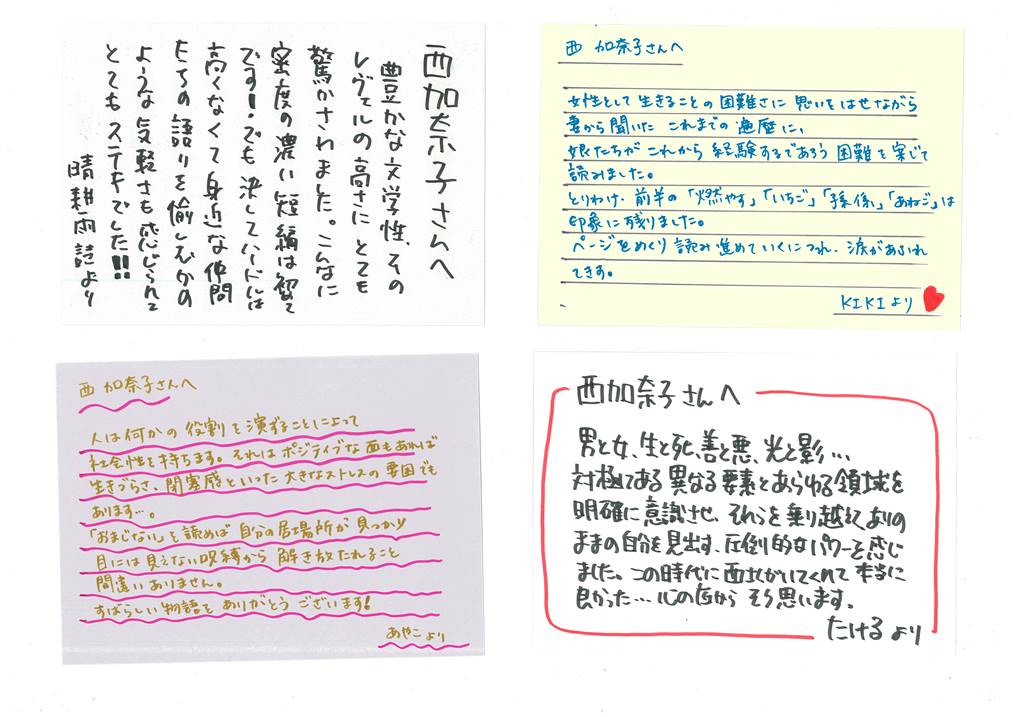 西加奈子さんへ
豊かな文学性、その
レヴェルの高さにとても
驚かされました。こんなに
密度の濃い短編は初めて
です！でも決してハードルは
高くなくて身近な仲間
たちの語りを愉しむかの
ような気軽さも感じられて
とてもステキでした!!
晴耕雨読より
西 加奈子さんへ
女性として生きることの困難さに思いをはせながら
妻から聞いたこれまでの遍歴に、
娘たちがこれから経験するであろう困難を案じて
読みました。
とりわけ、前半の「燃やす」「いちご」「孫係」「あねご」は
印象に残りました。
ページをめくり読み進めていくにつれ、涙があふれ
てきます。
KIKIより
西 加奈子さんへ
人は何かの役割を演ずることによって
社会性を持ちます。それはポジティブな面もあれば
生きづらさ、閉塞感といった大きなストレスの要因でも
あります…。
「おまじない」を読めば自分の居場所が見つかり
目には見えない呪縛から解き放たれること
間違いありません。
すばらしい物語をありがとうございます!
あやこより
西加奈子さんへ
男と女、生と死、善と悪、光と影…
対極である異なる要素とあらゆる領域を
明確に意識させ、それらを乗り越えて、ありの
ままの自分を見出す、圧倒的なパワーを感じ
ました。この時代に西加がいてくれて本当に
良かった…心の底からそう思います。
たけるより